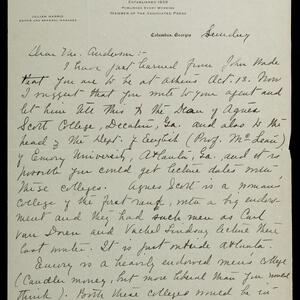 ESTABLISHED 1828
PUBLISHED EVERY MORNING
MEMBER OF THE ASSOCIATED PRESS
JULIAN HARRIS
EDITOR AND GENERAL MANAGER
Columbus, Georgia
Sunday
Dear Mr. Anderson:-
I have just learned from John Wade
that you are to be at Athens Oct. 18. Now
I suggest that you write to your agent and
let him tell this to the Dean of Agnes
Scott College, Decatur, Ga. and also to the
head of the Dept. of English (Prof. McLean)
of Emory University, Atlanta, Ga., and if is
possible you could get lecture dates with
these colleges. Agnes Scott is a woman's
college of the first rank, with a big endow-
ment and they had such men as Carl
van Doren and Vachel Lindsay lecture there
last winter. It is just outside Atlanta.
Emory is a heavily endowed men's college
(Candler money, but more liberal than you would
think). Both these colleges would be in